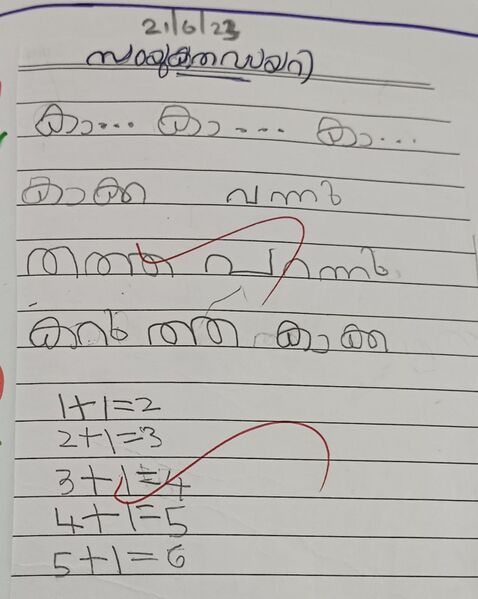 21/6/23
സംയുക്തഡയറി
കാ... കാ... കാ...
കാക്ക വന്നു
തത്ത പറന്നു
കാക്ക
1+1=2
2+1=3
3+1=4
4+1=5
5+1=6